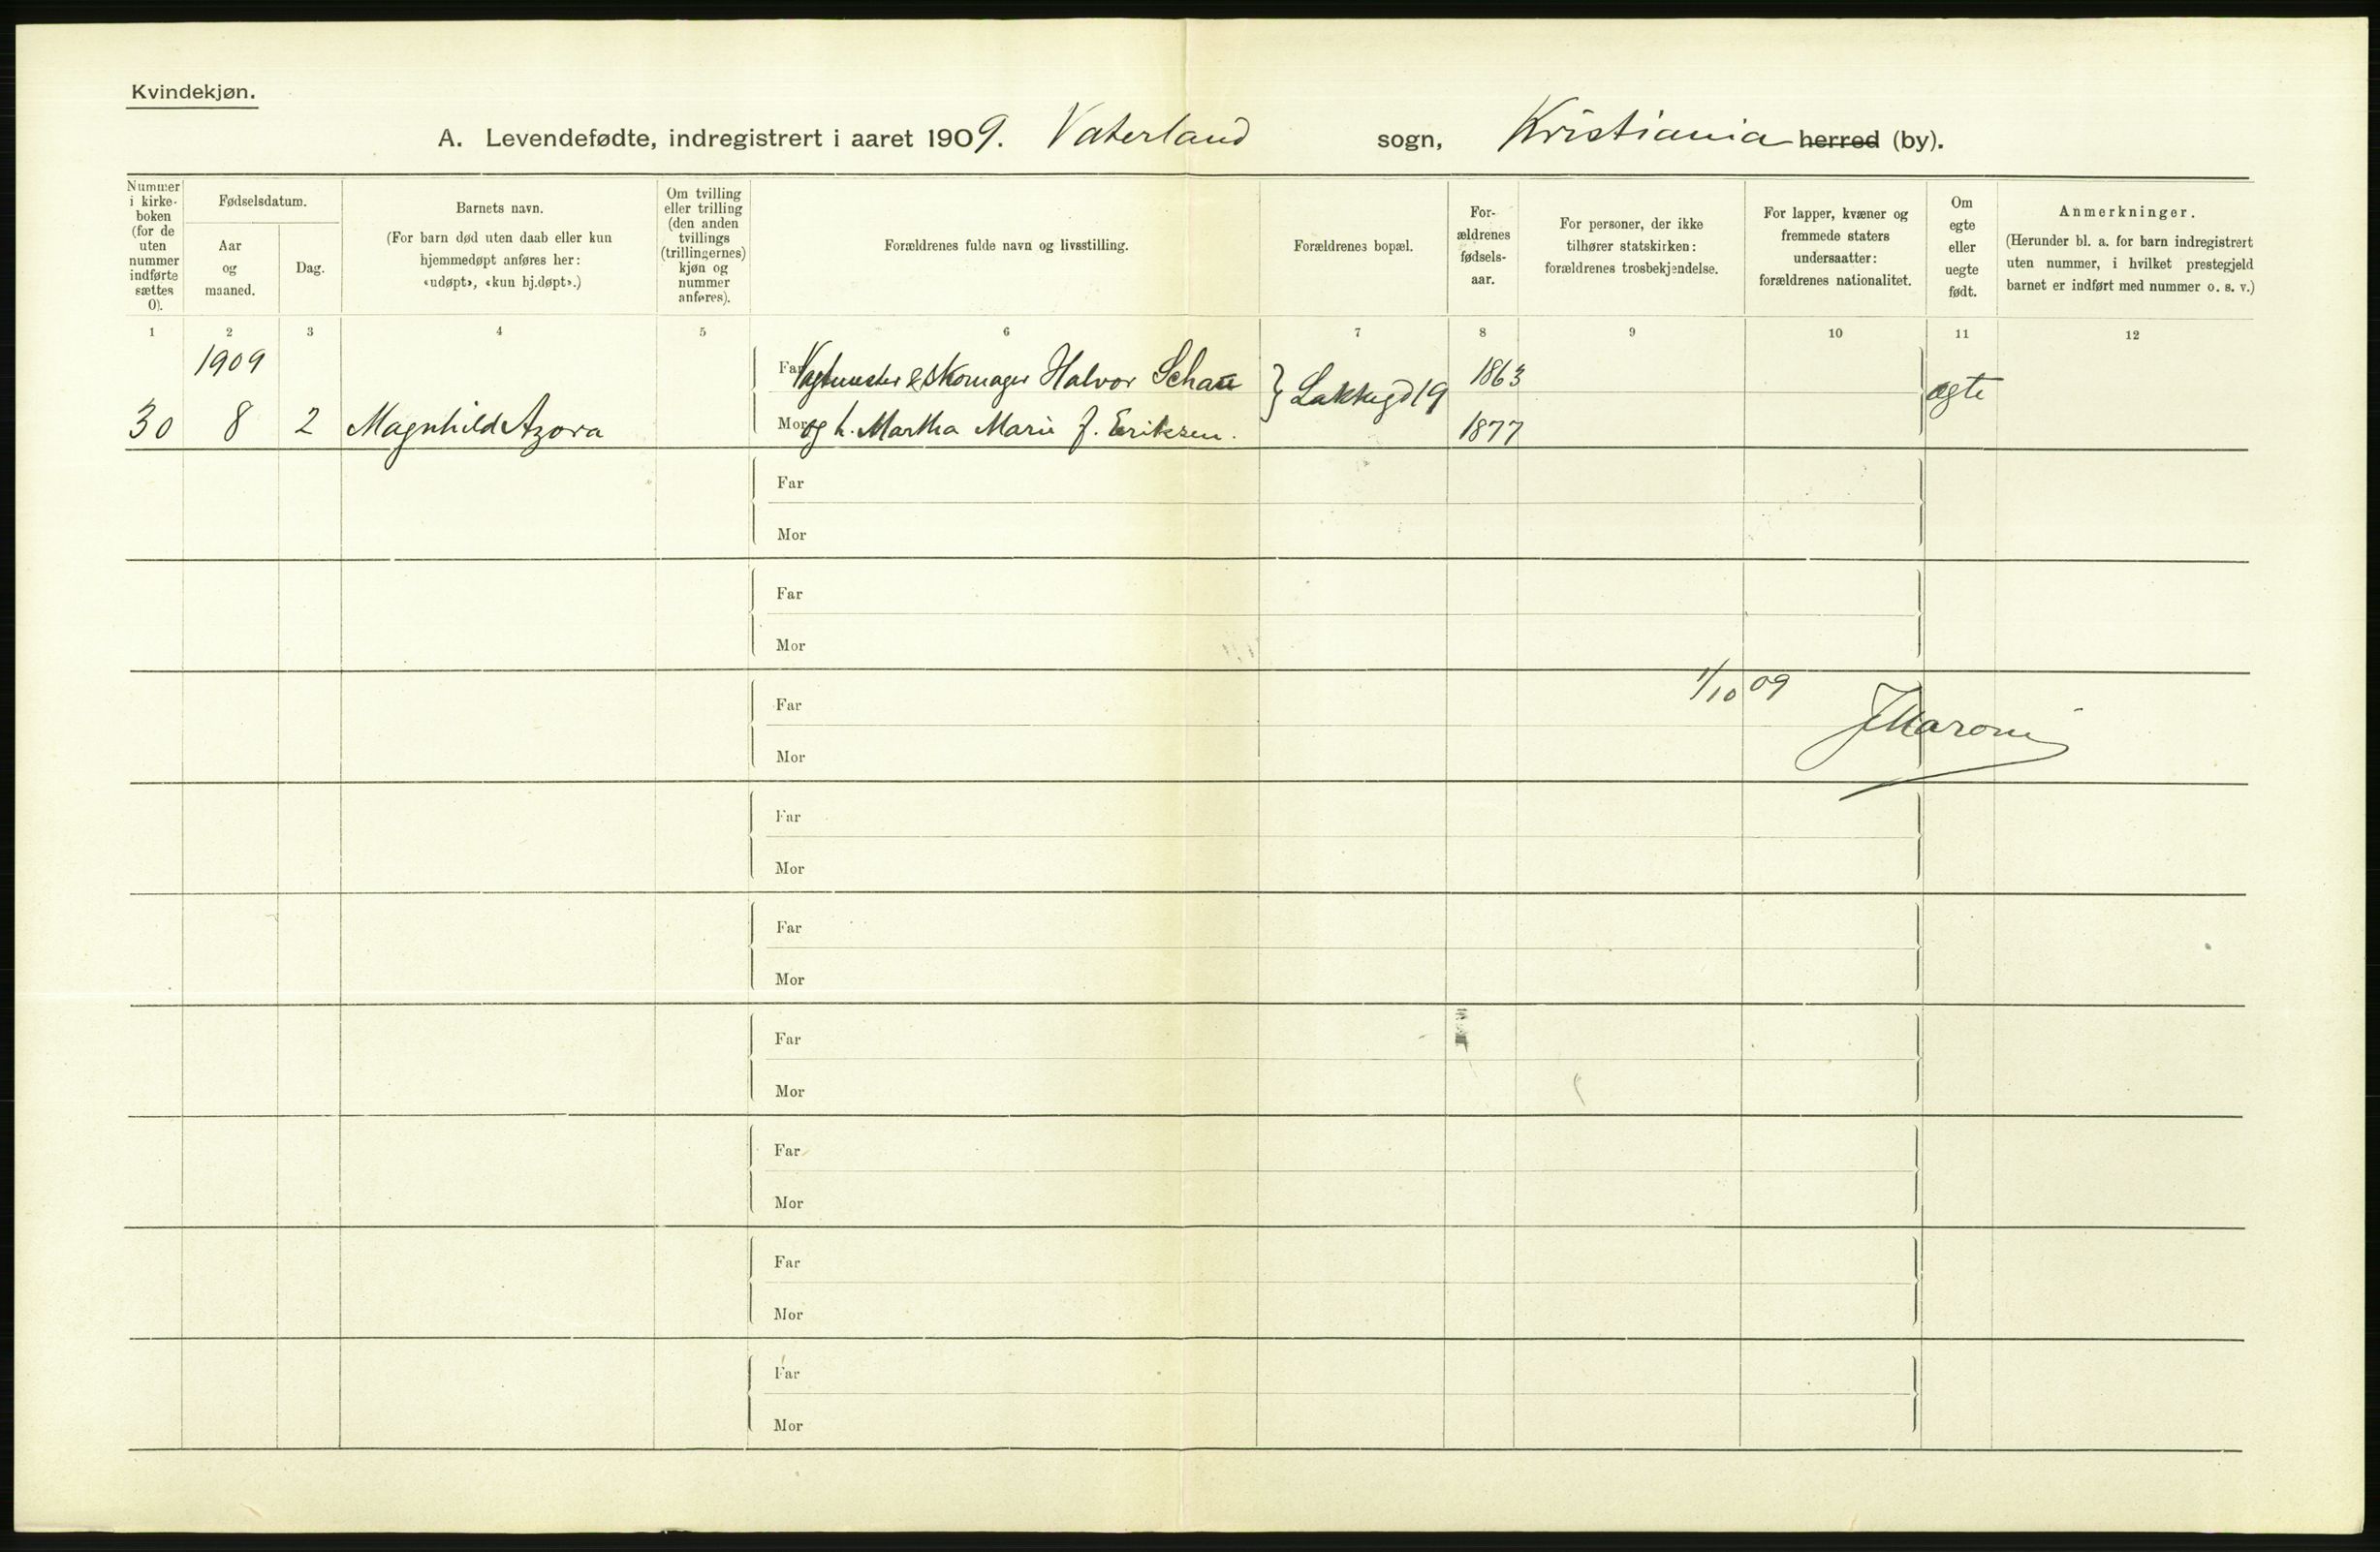 Kvindekjøn.
A. Levendefødte, indregistrert i aaret 1909. Vaterland sogn, Kristiania herred (by).
Nummer i kirke-boken (for de uten nummer indførte sættes 0).
Fødselsdatum.
Aar og maaned.
Dag.
Barnets navn.
(For barn død uten daab eller kun hjemmedøpt anføres her: «udøpt», «kun hj.døpt».)
Om tvilling eller trilling (den anden tvillings (trillingernes) kjøn og nummer anføres).
Forældrenes fulde navn og livsstilling.
Forældrenes bopæl.
For-ældrenes fødsels-aar.
For personer, der ikke tilhører statskirken: forældrenes trosbekjendelse.
For lapper, kvæner og fremmede staters undersaatter: forældrenes nationalitet.
Om egte eller uegte født.
Anmerkninger.
(Herunder bl. a. for barn indregistrert uten nummer, i hvilket prestegjeld barnet er indført med nummer o. s. v.)
1 2 3 4 5 6 7 8 9 10 11 12
1909 Far Vagtmester & Skomager Halvor Schau 1863
30 8 2 Magnhild Azora Mor og h. Martha Marie f. Eriksen. Lakkegd 19 1877 ægte
Far
Mor
Far
Mor
1/10 09
Far
JMaroni
Mor
Far
Mor
Far
Mor
Far
Mor
Far
Mor
Far
Mor
Far
Mor